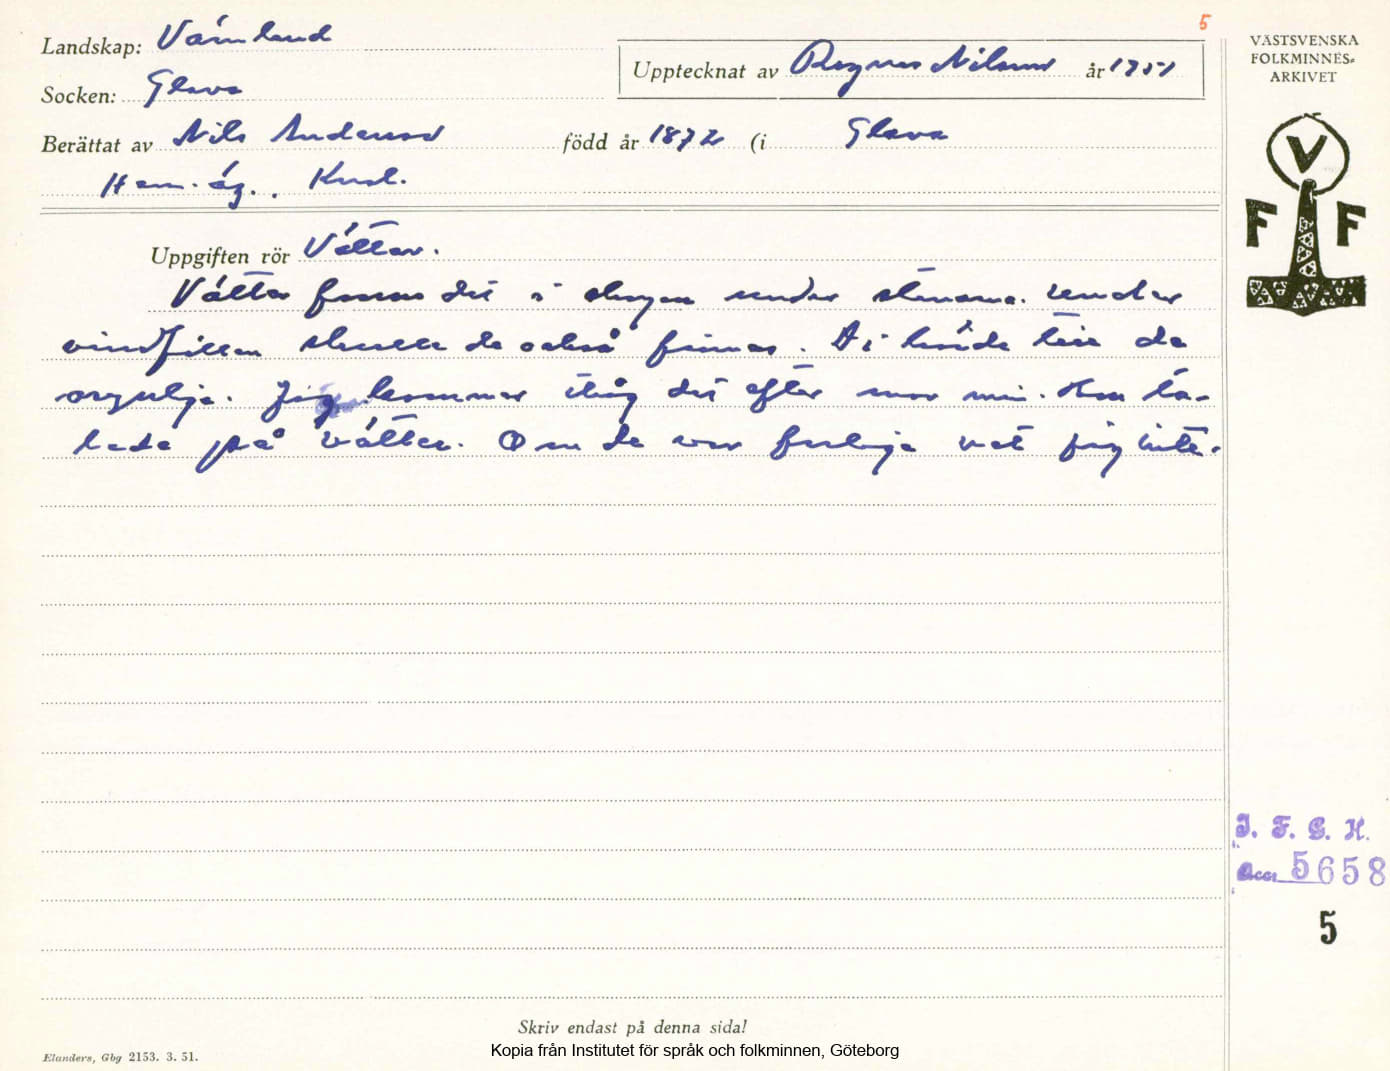 5
Landskap: Värmland
Upptecknat av Ragnar Nilsson år 1951
VÄSTSVENSKA
FOLKMINNES-
ARKIVET
Socken: Glava
Berättat av Nils Andersson född år 1872 (i Glava
Hem. äg.,
V
F F
Uppgiften rör Vättar.
Vättar fanns det i skogen under stenarna. Under
vindfällen skulle de också finnas. Di hörde te
. Jag kommer ihåg det efter mor min. Hon ta-
lade på vätter. Om de var farliga vet jag inte.
I. F. G. H.
Acc. 5658
5
Skriv endast på denna sida!
Elanders, Gbg 2153. 3. 51.
Kopia från Institutet för språk och folkminnen, Göteborg